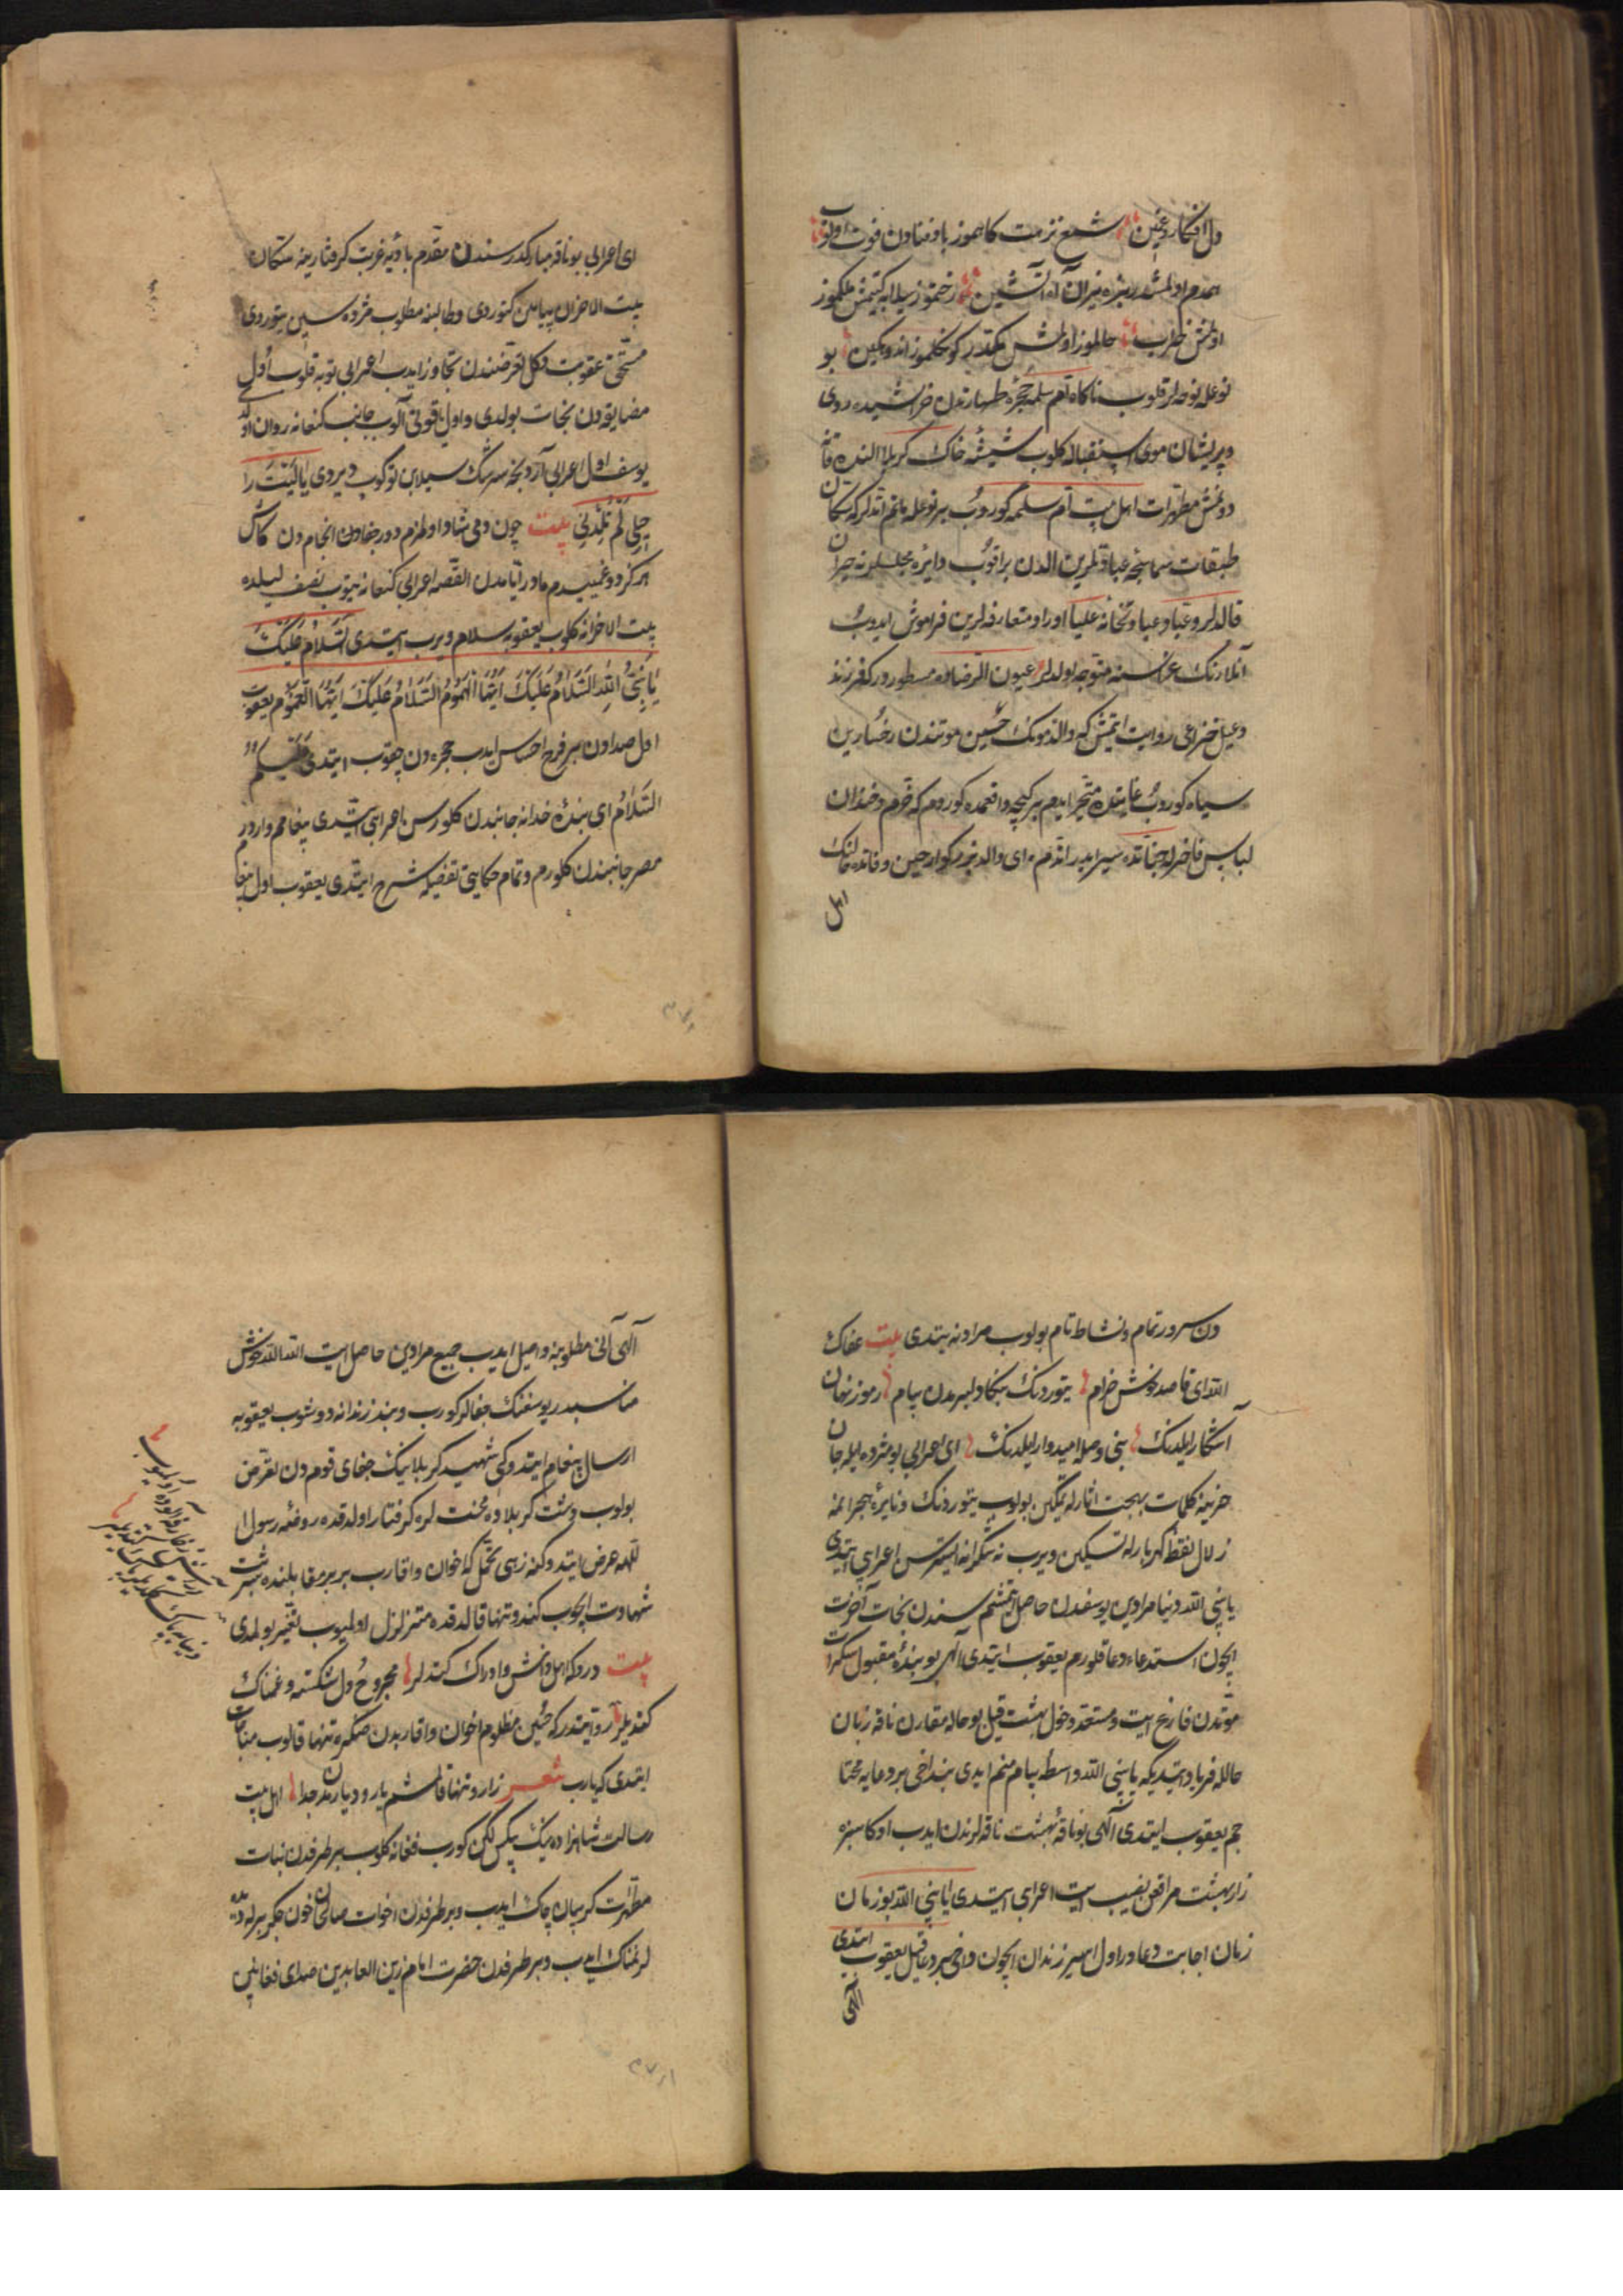 دل افکار و غمین شمع نزهت کاهموز باد فنادن فوت اولوب
همدم اولمشدر بزه نیران آه آتشین زخمتوز سیلابه کیتمش ملکموز
اولمش خراب حالموز اولمش مکدر کونکلموز اندوهکین بو
نوعله نوحه لر قلوب ناکاه ام سلمه حجره طهارتدن خراشیده روی
و پریشان موی استقباله کلوب شیشه خاک کربلا النده قانه
دونمش مطهرات اهل بیت ام سلمه کوروب بر نوعله ماتم اتدلر که سکان
طبقات سما پنجه عبا قلرین الدن براقوب دایره مجلسلرنه حیران
قالدلر و غبا و عبا و تحفانه علیا اوراد متعارفه لرین فراموش ایدوب
آنلارنک عزاسنه متوجه اولدلر عیون الرضاده مسطور در که فرزند
دعبل خزاعی روایت ایتمش که والدمونک حین موتندن رخسارین
سیاه کوروب غایتده متحیر ایدم بر کیجه واقعه ده کوردم که خرم و خندان
لباس فاخرله جنانده سیر ایدر اتدم ای والد بزرکوار حین وفاتده حالنک
اهل
ای اعرابی بو ناقه مبارکدر سندن مقدم بادیه غربت کرفتارینه سکان
بیت الاحزان پیامن کتوردی و طالبنه مطلوب مژده سین یتوردی
مستحق عقوبت دکل تعرضندن تجاوز ایدب اعرابی توبه قلوب اول
مضایقه دن نجات بولدی و اول یاقوتی آلوب جانب کنعانه روان اولد
یوسف اول اعرابی آردنجه سرشک سیلابن توکوب دیردی یا لیت را
حیل لم تلدنی بیت چون دمی شاد اولمزم دور جفادن انجام دن کاش
هر کز دوغمیدم مادر ایامدن القصه اعرابی کنعانه یتوب نصف لیلده
بیت الاحزانه کلوب یعقوبه سلام ویرب ایتدی السلام علیک
یا نبی الله السلام علیک ایها المهموم السلام علیک ایها المغموم یعقوب
اول صدادن بر فرح احساس ایدب حجره دن چقوب ایتدی علیکم
السلام ای بنده خدا نه جانبدن کلورسن اعرابی ایتدی پیغامم واردر
مصر جانبندن کلورم و تمام حکایتی تفصیله شرح ایتدی یعقوب اول پیغا
دن سرور تمام و نشاط تام بولوب مرادنه یتدی بیت عفاک
الله ای قاصد خوش خرام یتوردنک بنکا دلبرمدن پیام رموز نهان
آشکار ایلدنک بنی وصله امیدوار ایلدنک ای اعرابی بو مژده ایله جان
حزینه کلمات بهجت اثارله تمکین بولوب یتوردنک و نایره هجرانمه
زلال نقطه کهربارله تسکین ویرب نه شکرانه ایسترسن اعرابی ایتدی
یا نبی الله دنیا مرادین یوسفدن حاصل اتمشم سندن نجات آخرت
ایچون استدعاء دعا قلورم یعقوب ایتدی الهی بو بنده مقبول سکرات
موتدن فارغ ایت و مستحق دخول بهشت قیل بو حاله مقارن ناقه زبان
حالله فریاد ایتدیکه یا نبی الله واسطه پیام منم ایدی بنداخی بر دعایه محتا
جم یعقوب ایتدی الهی بو ناقه بهشت ناقه لرندن ایدب اوکا سبزه
زار بهشت مراقعن نصیب ایت اعرابی ایتدی یا نبی الله بو زمان
زمان اجابت دعادر اول اسیر زندان ایچون داخی بر دعا قیل یعقوب ایتدی
الهی
الهی آنی مطلوبنه واصل ایدب جمیع مرادین حاصل ایت الله الله خوش
مناسبدر یوسفنک جفالر کورب و بند زندانه دوشوب یعقوبه
ارسال پیغام ایتدوکی شهید کربلانیک جفای قوم دن تعرض
بولوب دشت کربلاده محنت لره کرفتار اولدقده روضه رسول ا
للهه عرض ایتدوکنه زهی تحمل که اخوان و اقارب بربر مقابلنده شربت
شهادت ایچوب کندو تنها قالدقده متزلزل اولمیوب تغیر بولمدی
بیت دردکه اهل دانش و ادراک کتدلر مجروح دل شکسته و غمناک
کتدیلر روایتدر که حسین مظلوم اخوان و اقاربدن صکره تنها قالوب مناجات
ایتدی که یارب شعر زار و تنها قالمشم یار و دیارمدن جدا اهل بیت
رسالت شاهزاده نیک بیکس لکن کورب فغانه کلوب بر طرفدن بنات
مطهرات کریبان چاک ایدب و بر طرفدن اخوات صالحات خون جکر برله دیده
لر نمناک ایدب و بر طرفدن حضرت امام زین العابدین صدای فغانین